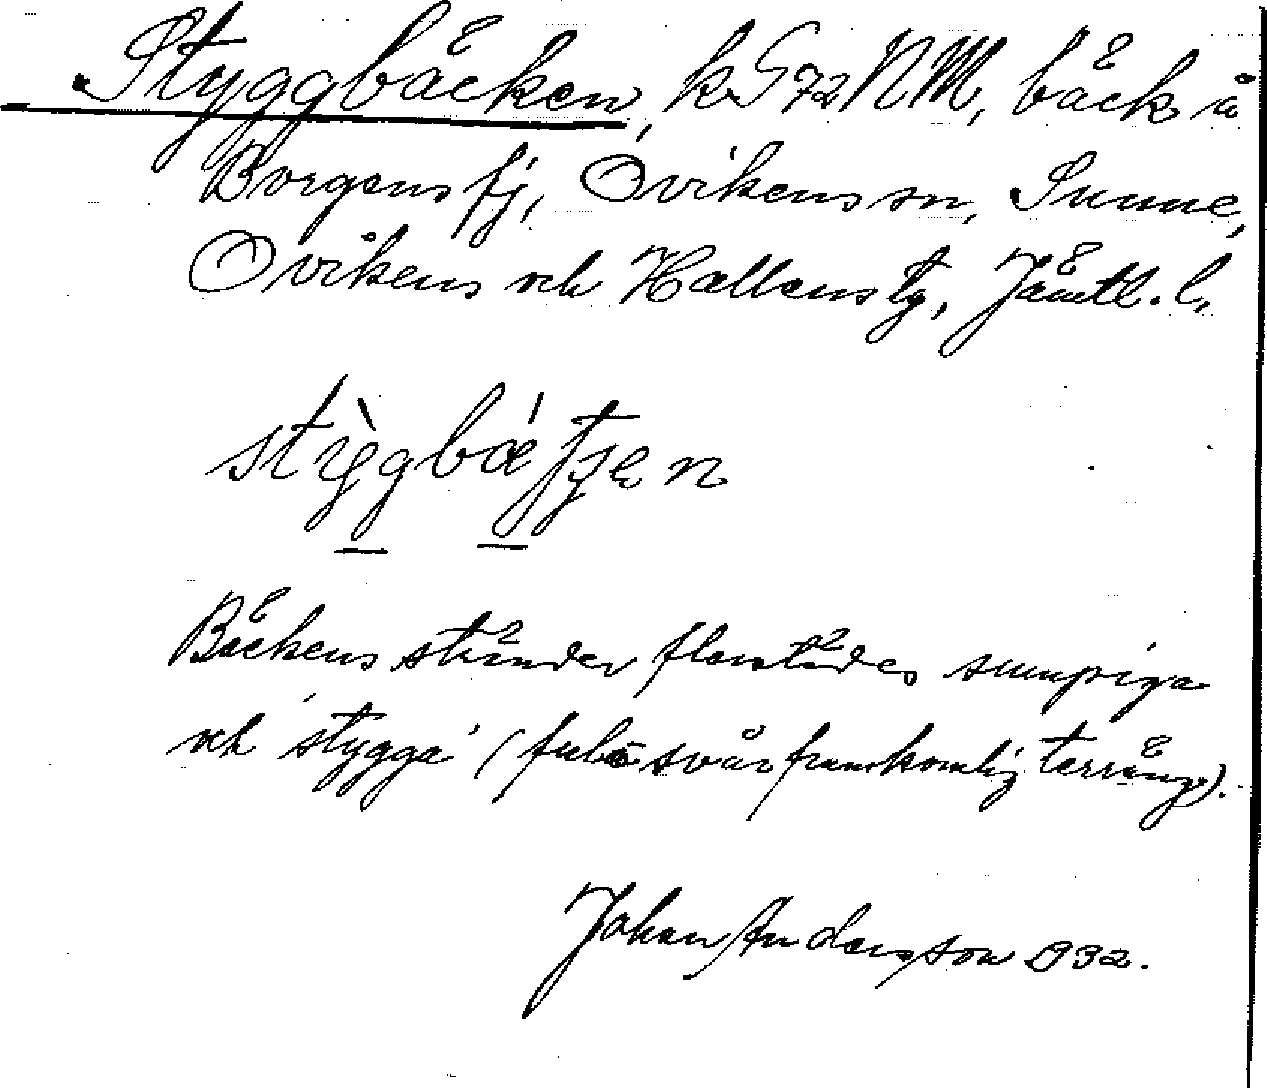 Styggbäcken, k G 72 NM, bäck i
Borgens fj, Ovikens sn, Sunne,
Ovikens och Hallens tg, Jämtl. l.
stỳgbæ´ʃʃen
Bäckens stränder flerstädes sumpiga
och 'stygga' (ful svårframkomlig terräng).
Johan Andersson 1932.